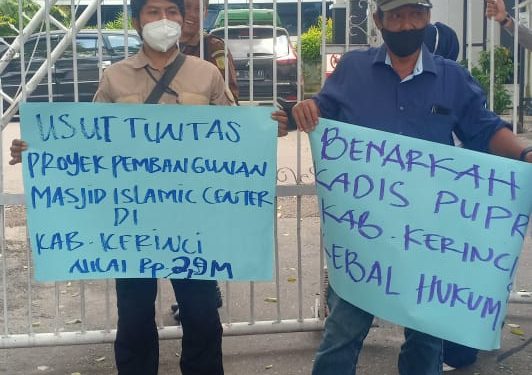 USUT TUNTAS
PROYEK PEMBANGUNAN
MASJID ISLAMIC CENTER
DI
KAB. KERINCI
NILAI Rp. 2,9 M
BENARKAH
KADIS PUPR
KAB. KERINCI
KEBAL HUKUM